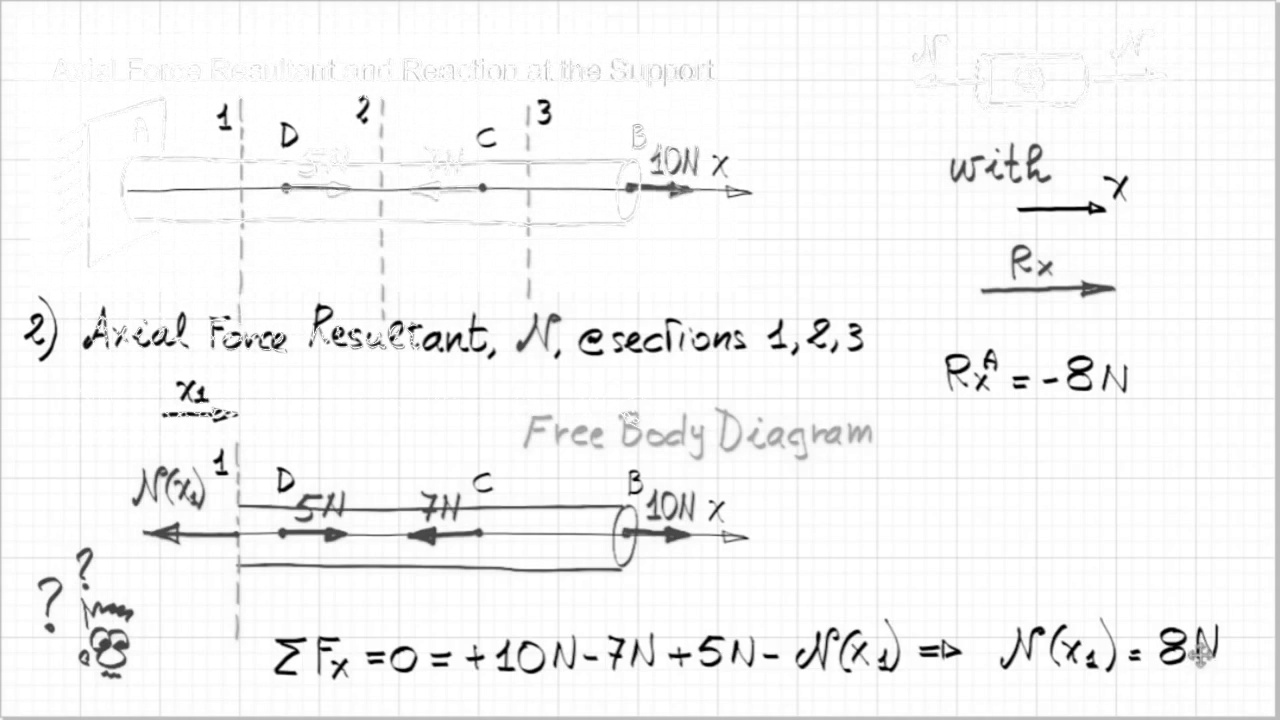 Axial Force Resultant and Reaction at the Support
N N
1 2 3
A D C B
5N 7N 10N x
with
x
Rx
2) Axial Force Resultant, N, @sections 1,2,3
RxA = -8N
x1
Free Body Diagram
1 D C B
N(x1) 5N 7N 10N x
? ?
ΣFx = 0 = +10N - 7N + 5N - N(x1) ⇒ N(x1) = 8N